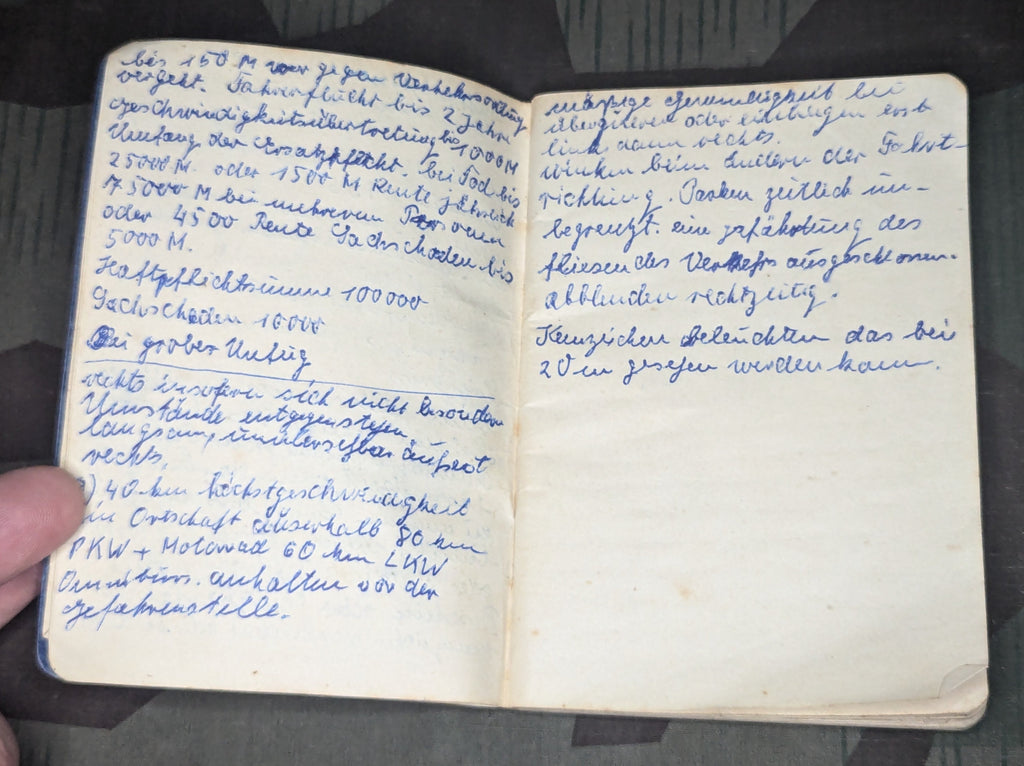 bis 150 M wer gegen Verkehrsordnung
vergeht. Fahrerflucht bis 2 Jahre
geschwindigkeitsübertretung bis 1000 M
Umfang der Ersatzpflicht. bei Tod bis
25000 M. oder 1500 M Rente jährlich
75000 M bei mehreren Personen
oder 4500 Rente Sachschaden bis
5000 M.
Haftpflichtsumme 100000
Sachschaden 10000
Bei grober Unfug
rechts insofern sich nicht besondere
Umstände entgegenstehen
langsam, unübersehbar äußerst
rechts,
40 km höchstgeschwindigkeit
in Ortschaft auserhalb 80 km
PKW + Motorrad 60 km LKW
Omnibus. anhalten vor der
gefahrenstelle.
mäßige Geschwindigkeit bei
oder einbiegen erst
links dann rechts.
winken beim ändern der Fahrt-
richtung. Parken zeitlich un-
begrenzt. eine gefährdung des
fliesendes Verkehrs ausgeschlossen.
abblenden rechtzeitig.
Kenzeichen beleuchten das bei
20 m gesehen werden kann.